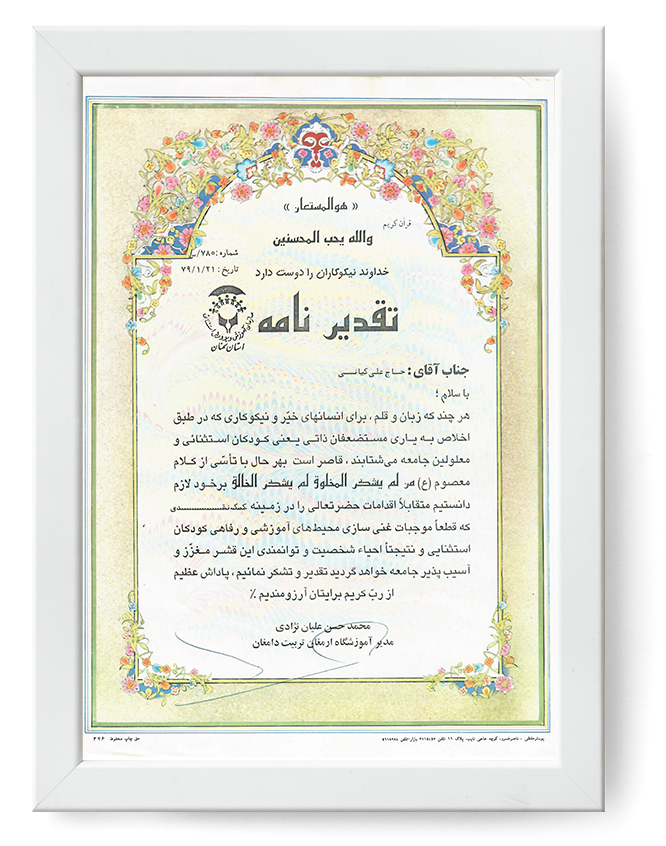 « هوالمستعان »
قرآن کریم
والله یحب المحسنین
شماره : ۷۸۰/س
خداوند نیکوکاران را دوست دارد
تاریخ : ۷۹/۱/۲۱
تقدیر نامه
استان سمنان
جناب آقای : حاج علی کیانی
با سلام ؛
هر چند که زبان و قلم ، برای انسانهای خیّر و نیکوکاری که در طبق
اخلاص به یاری مستضعفان ذاتی یعنی کودکان استثنائی و
معلولین جامعه می‌شتابند ، قاصر است بهر حال با تأسّی از کلام
معصوم (ع) من لم یشکر المخلوق لم یشکر الخالق برخود لازم
دانستیم متقابلاً اقدامات حضرتعالی را در زمینه کمک نقدی
که قطعاً موجبات غنی سازی محیط‌های آموزشی و رفاهی کودکان
استثنایی و نتیجتاً احیاء شخصیت و توانمندی این قشر معزّز و
آسیب پذیر جامعه خواهد گردید تقدیر و تشکر نمائیم ، پاداش عظیم
از ربّ کریم برایتان آرزومندیم ٪
محمد حسن علیان نژادی
مدیر آموزشگاه ارمغان تربیت دامغان
حق چاپ محفوظ ۳۲۶